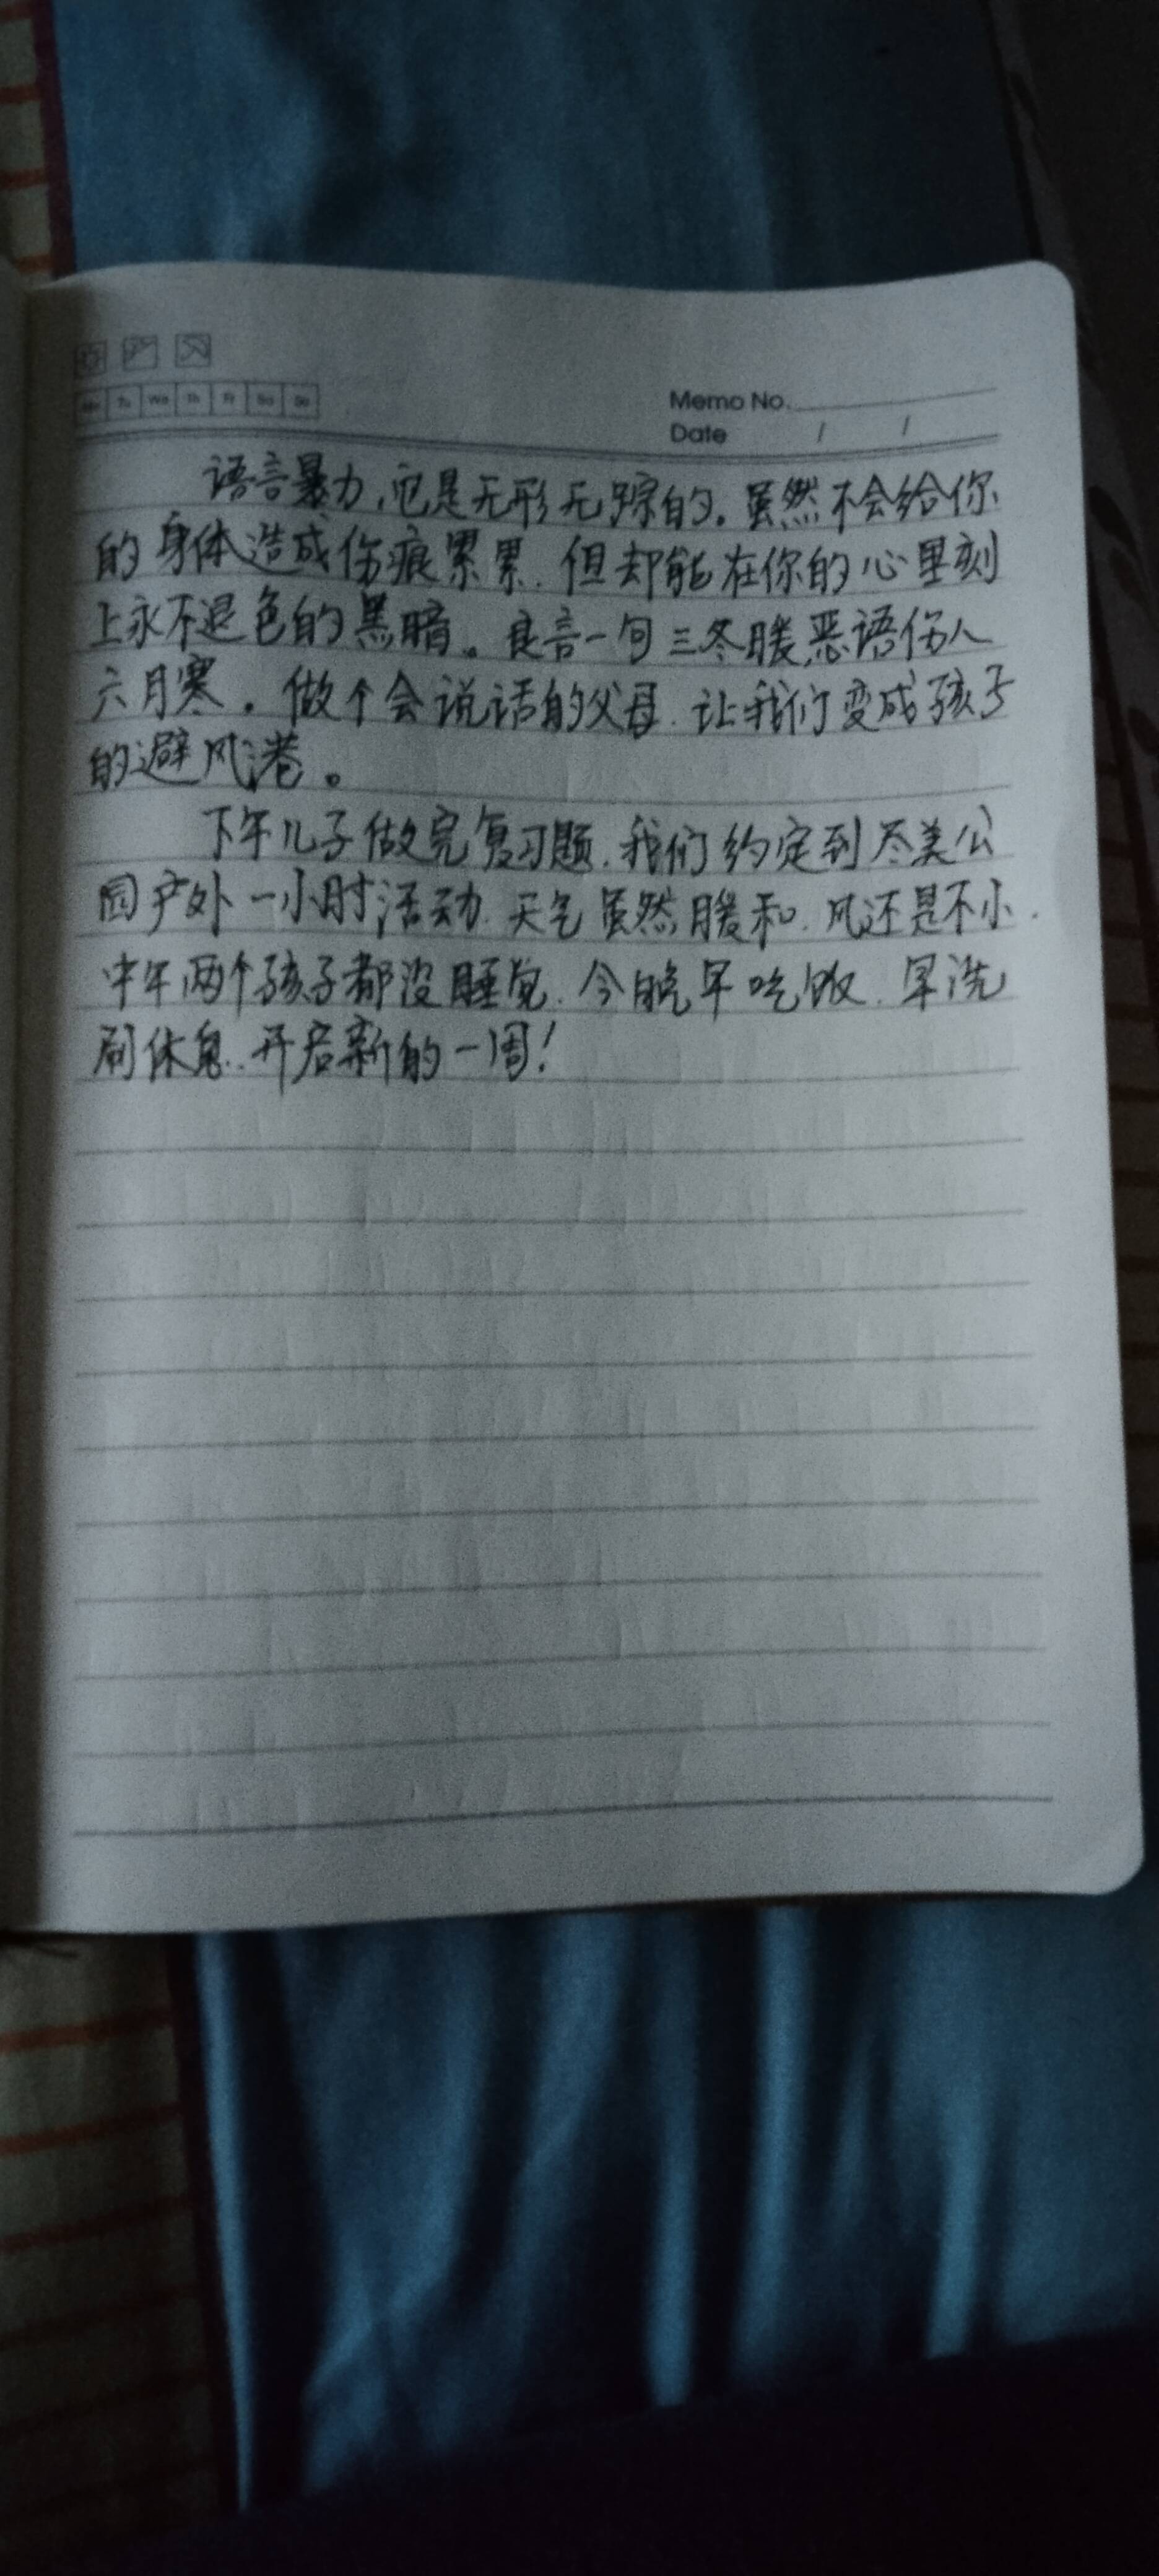 Mo Tu We Th Fr Sa Su
Memo No.
Date / /
语言暴力,它是无形无踪的。虽然不会给你
的身体造成伤痕累累,但却能在你的心里刻
上永不退色的黑暗。良言一句三冬暖,恶语伤人
六月寒。做个会说话的父母,让我们变成孩子
的避风港。
下午儿子做完复习题,我们约定到尽美公
园户外一小时活动,天气虽然暖和,风还是不小.
中午两个孩子都没睡觉,今晚早吃饭,早洗
刷休息,开启新的一周!